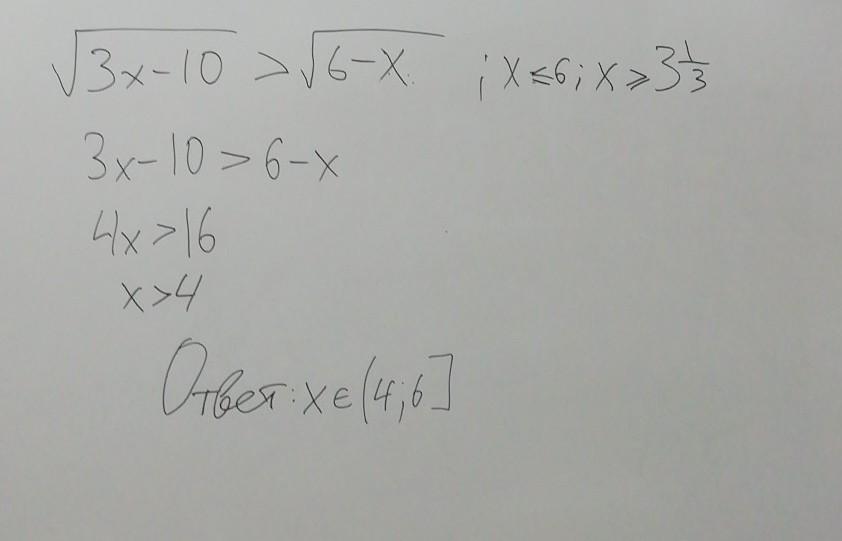 √(3x-10) > √(6-x) ; x ⩽ 6; x ⩾ 3 1/3
3x-10 > 6-x
4x > 16
x > 4
Ответ: x ∈ (4; 6]